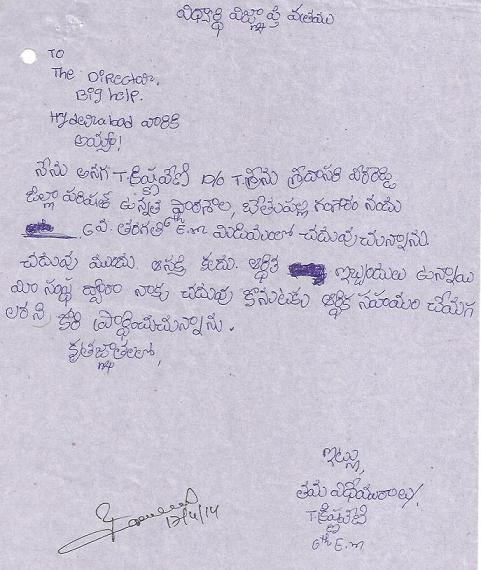 విద్యార్థి విజ్ఞాప్తి పత్రము
TO
The Director.
Big help.
Hyderabad వారికి
అయ్యా!
నేను అనగ T. కృష్ణవేణి D/o T. శ్రీను
జిల్లా పరిషత్ ఉన్నత పాఠశాల, బేతుపల్లి గంగారం నందు
6వ. తరగతిలో E.m మీడియంలో చదువుచున్నాను
చదువు మీద ఆసక్తి కలదు. ఆర్థిక ఇబ్బందులు ఉన్నాయి
మీ సంస్థ ద్వారా నాకు చదువు కొనుటకు ఆర్థిక సహయం చేయగ
లరని కోరి ప్రార్థించుచున్నాను.
కృతజ్ఞతలతో,
ఇట్లు,
తమ విధేయురాలు,
T. కృష్ణవేణి
6th E.m
12/4/14